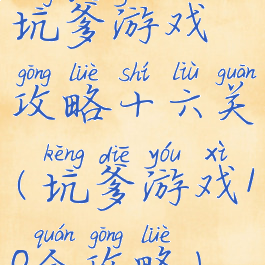 坑爹游戏
gōng lüè shí liù guān
攻略十六关
kēng diē yóu xì
(坑爹游戏1
quán gōng lüè
0全攻略)